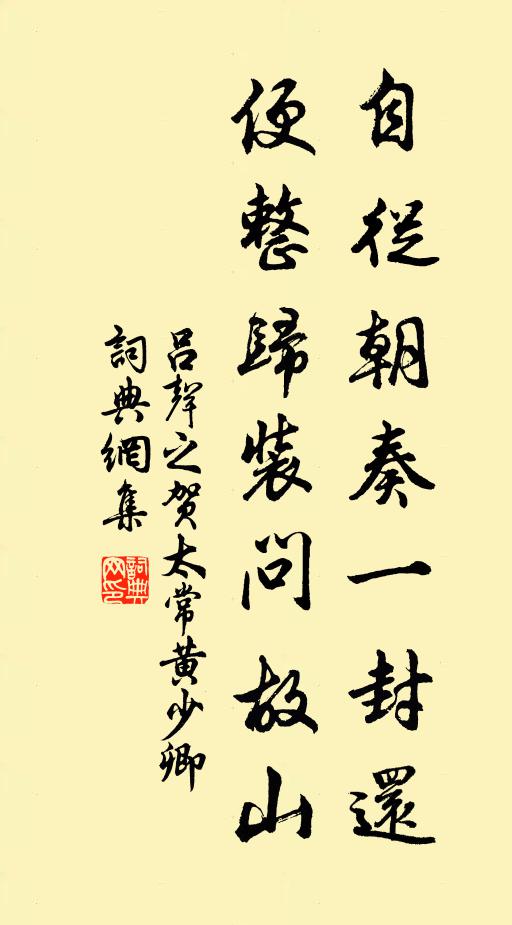 自從朝奏一封還
便整歸裝問故山
呂聲之賀太常黄少卿
詞典網集
詞典網印